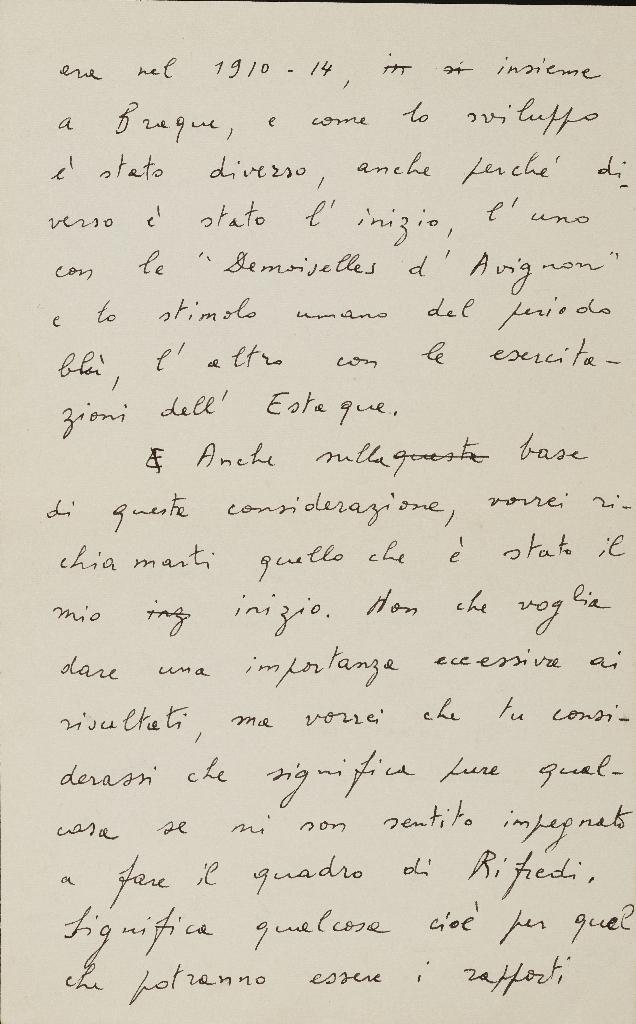 era nel 1910-14, in si insieme
a Braque, e come lo sviluppo
è stato diverso, anche perché di-
verso è stato l'inizio, l'uno
con le "Demoiselles d'Avignon"
e lo stimolo umano del periodo
blù, l'altro con le esercita-
zioni dell'Estaque.
E Anche sulla questa base
di questa considerazione, vorrei ri-
chiamarti quello che è stato il
mio inz inizio. Non che voglia
dare una importanza eccessiva ai
risultati, ma vorrei che tu consi-
derassi che significa pure qual-
cosa se mi son sentito impegnato
a fare il quadro di Rifredi.
Significa qualcosa cioè per quel
che potranno essere i rapporti